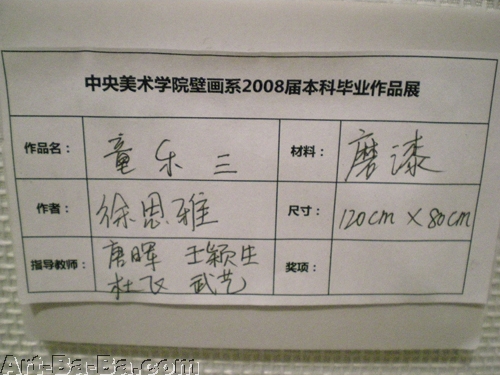 中央美术学院壁画系2008届本科毕业作品展
作品名： 童乐三 材料： 磨漆
作者： 徐恩雅 尺寸： 120cm×80cm
指导教师： 唐晖 王颖生 奖项：
杜飞 武艺
Art-Ba-Ba.com